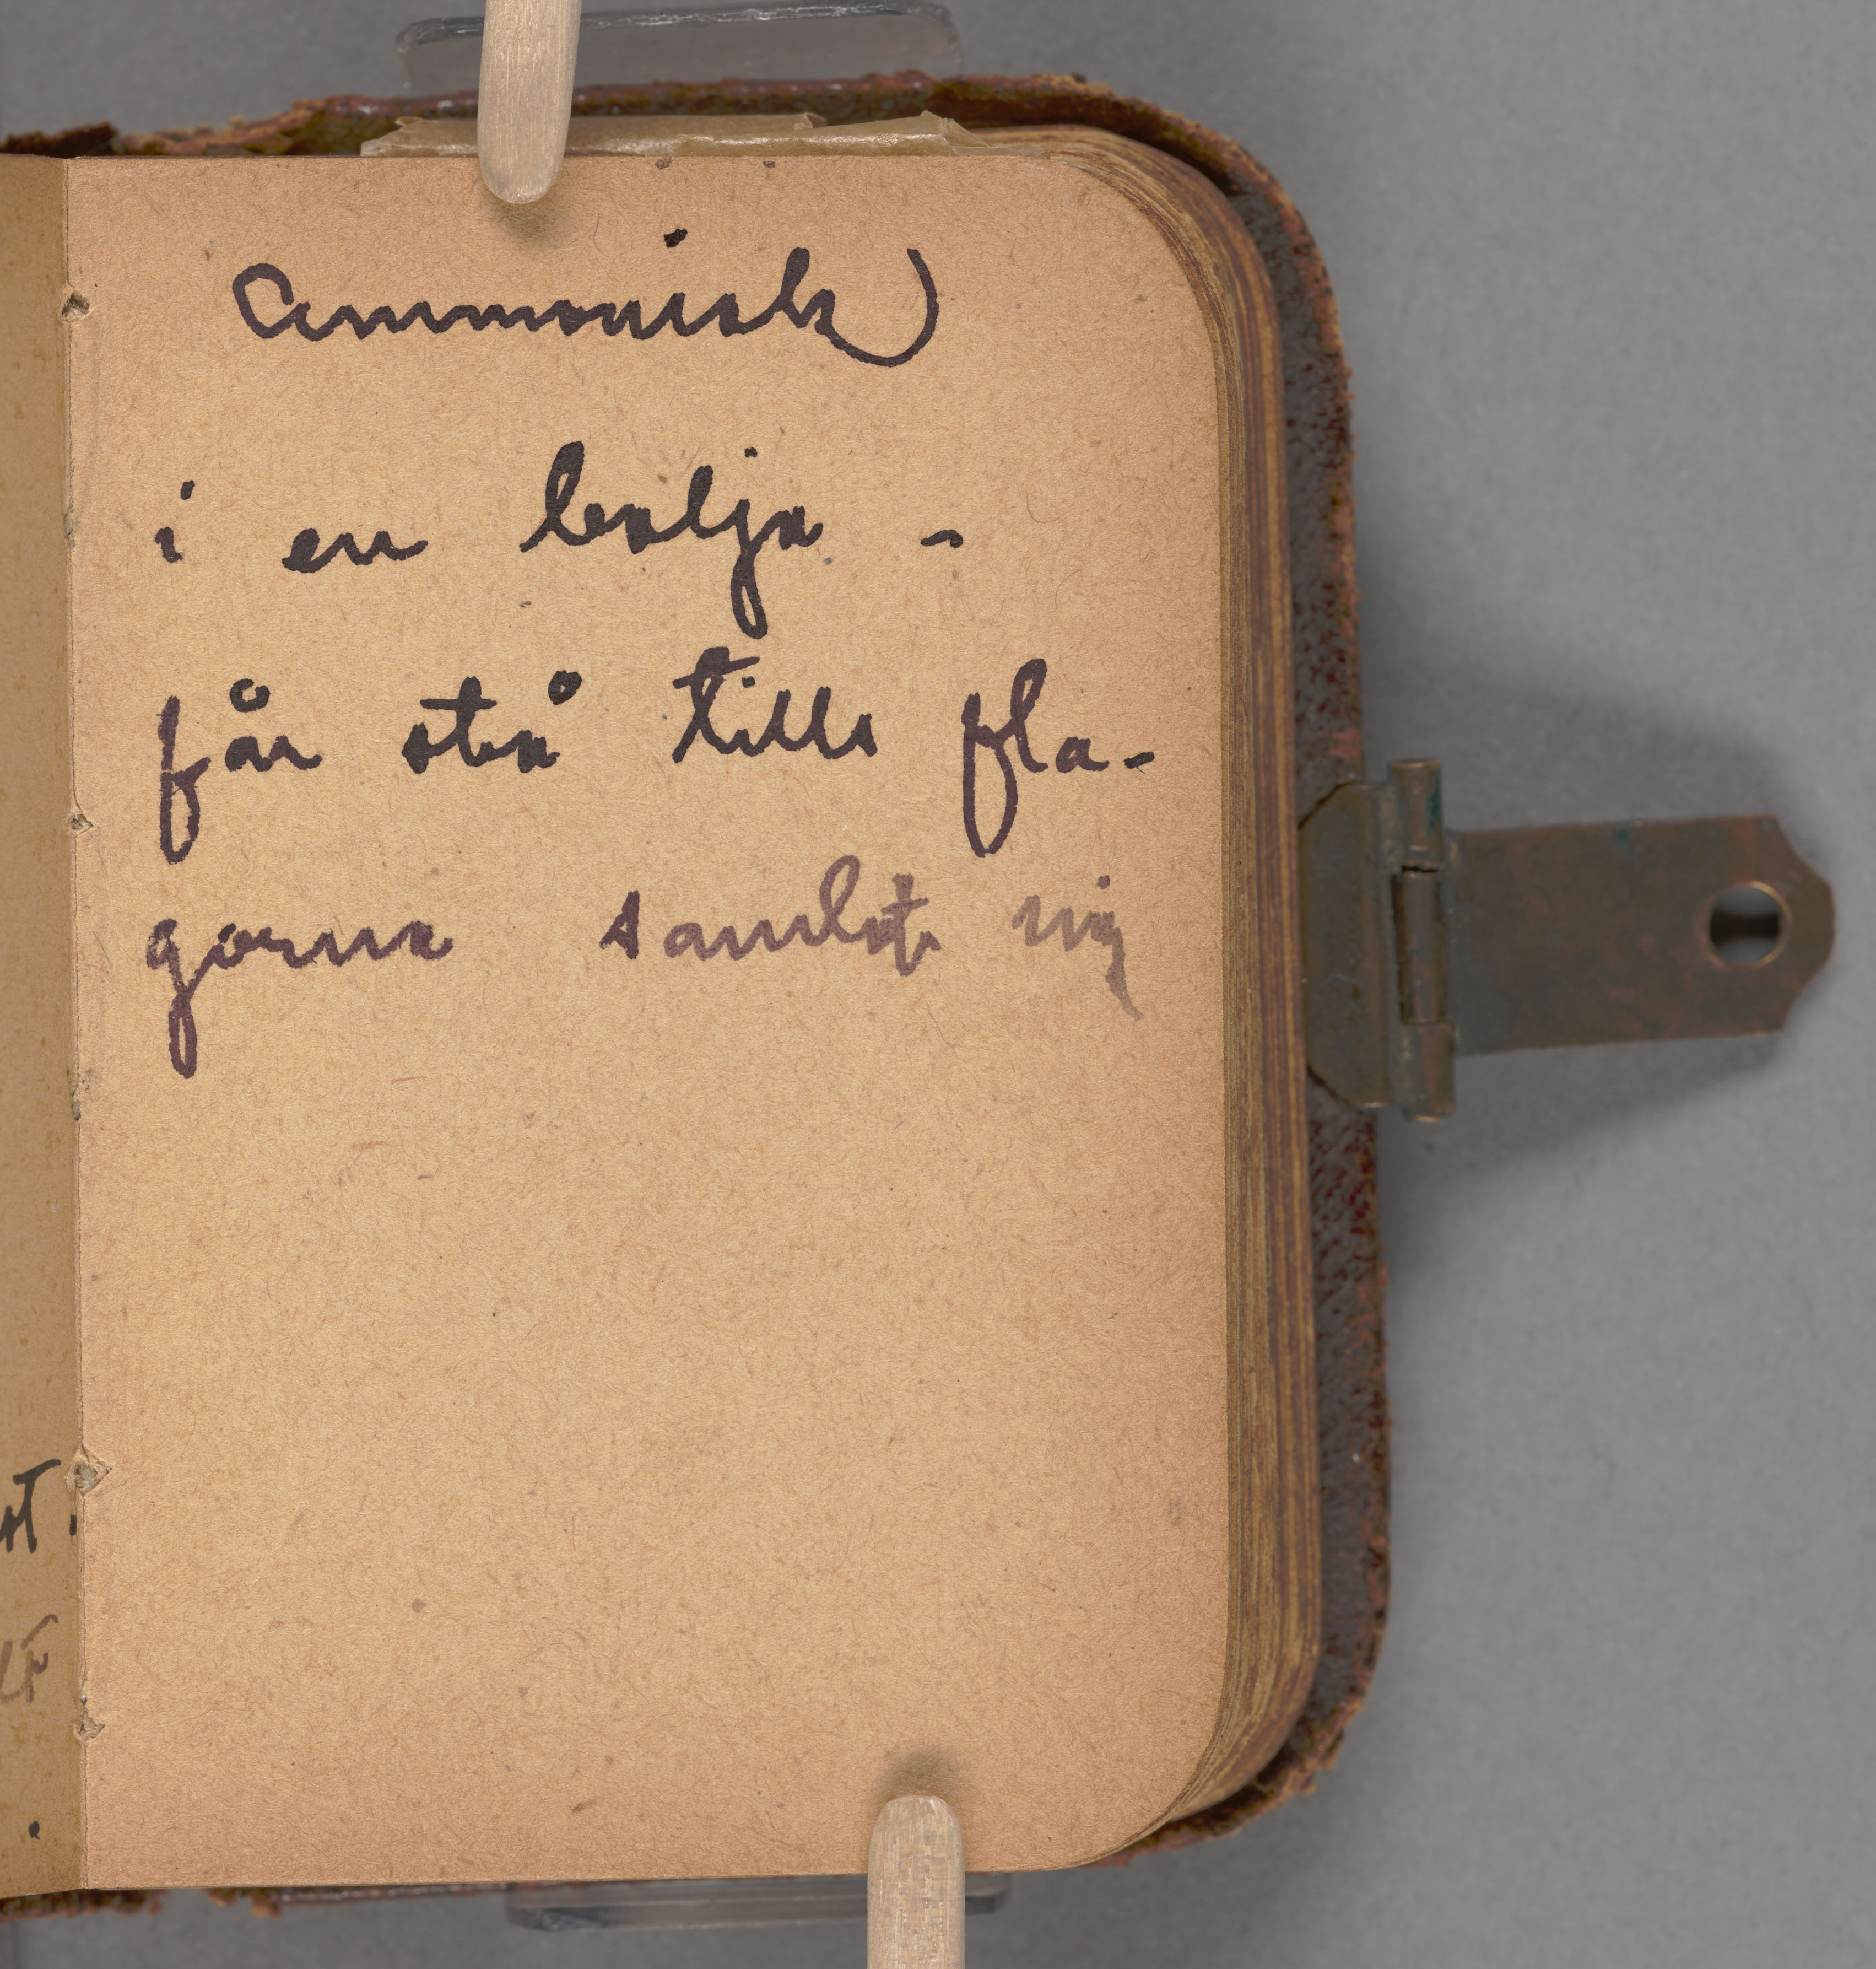 Ammoniak)
i en balja -
får stå tills fla-
gorna samlat sig